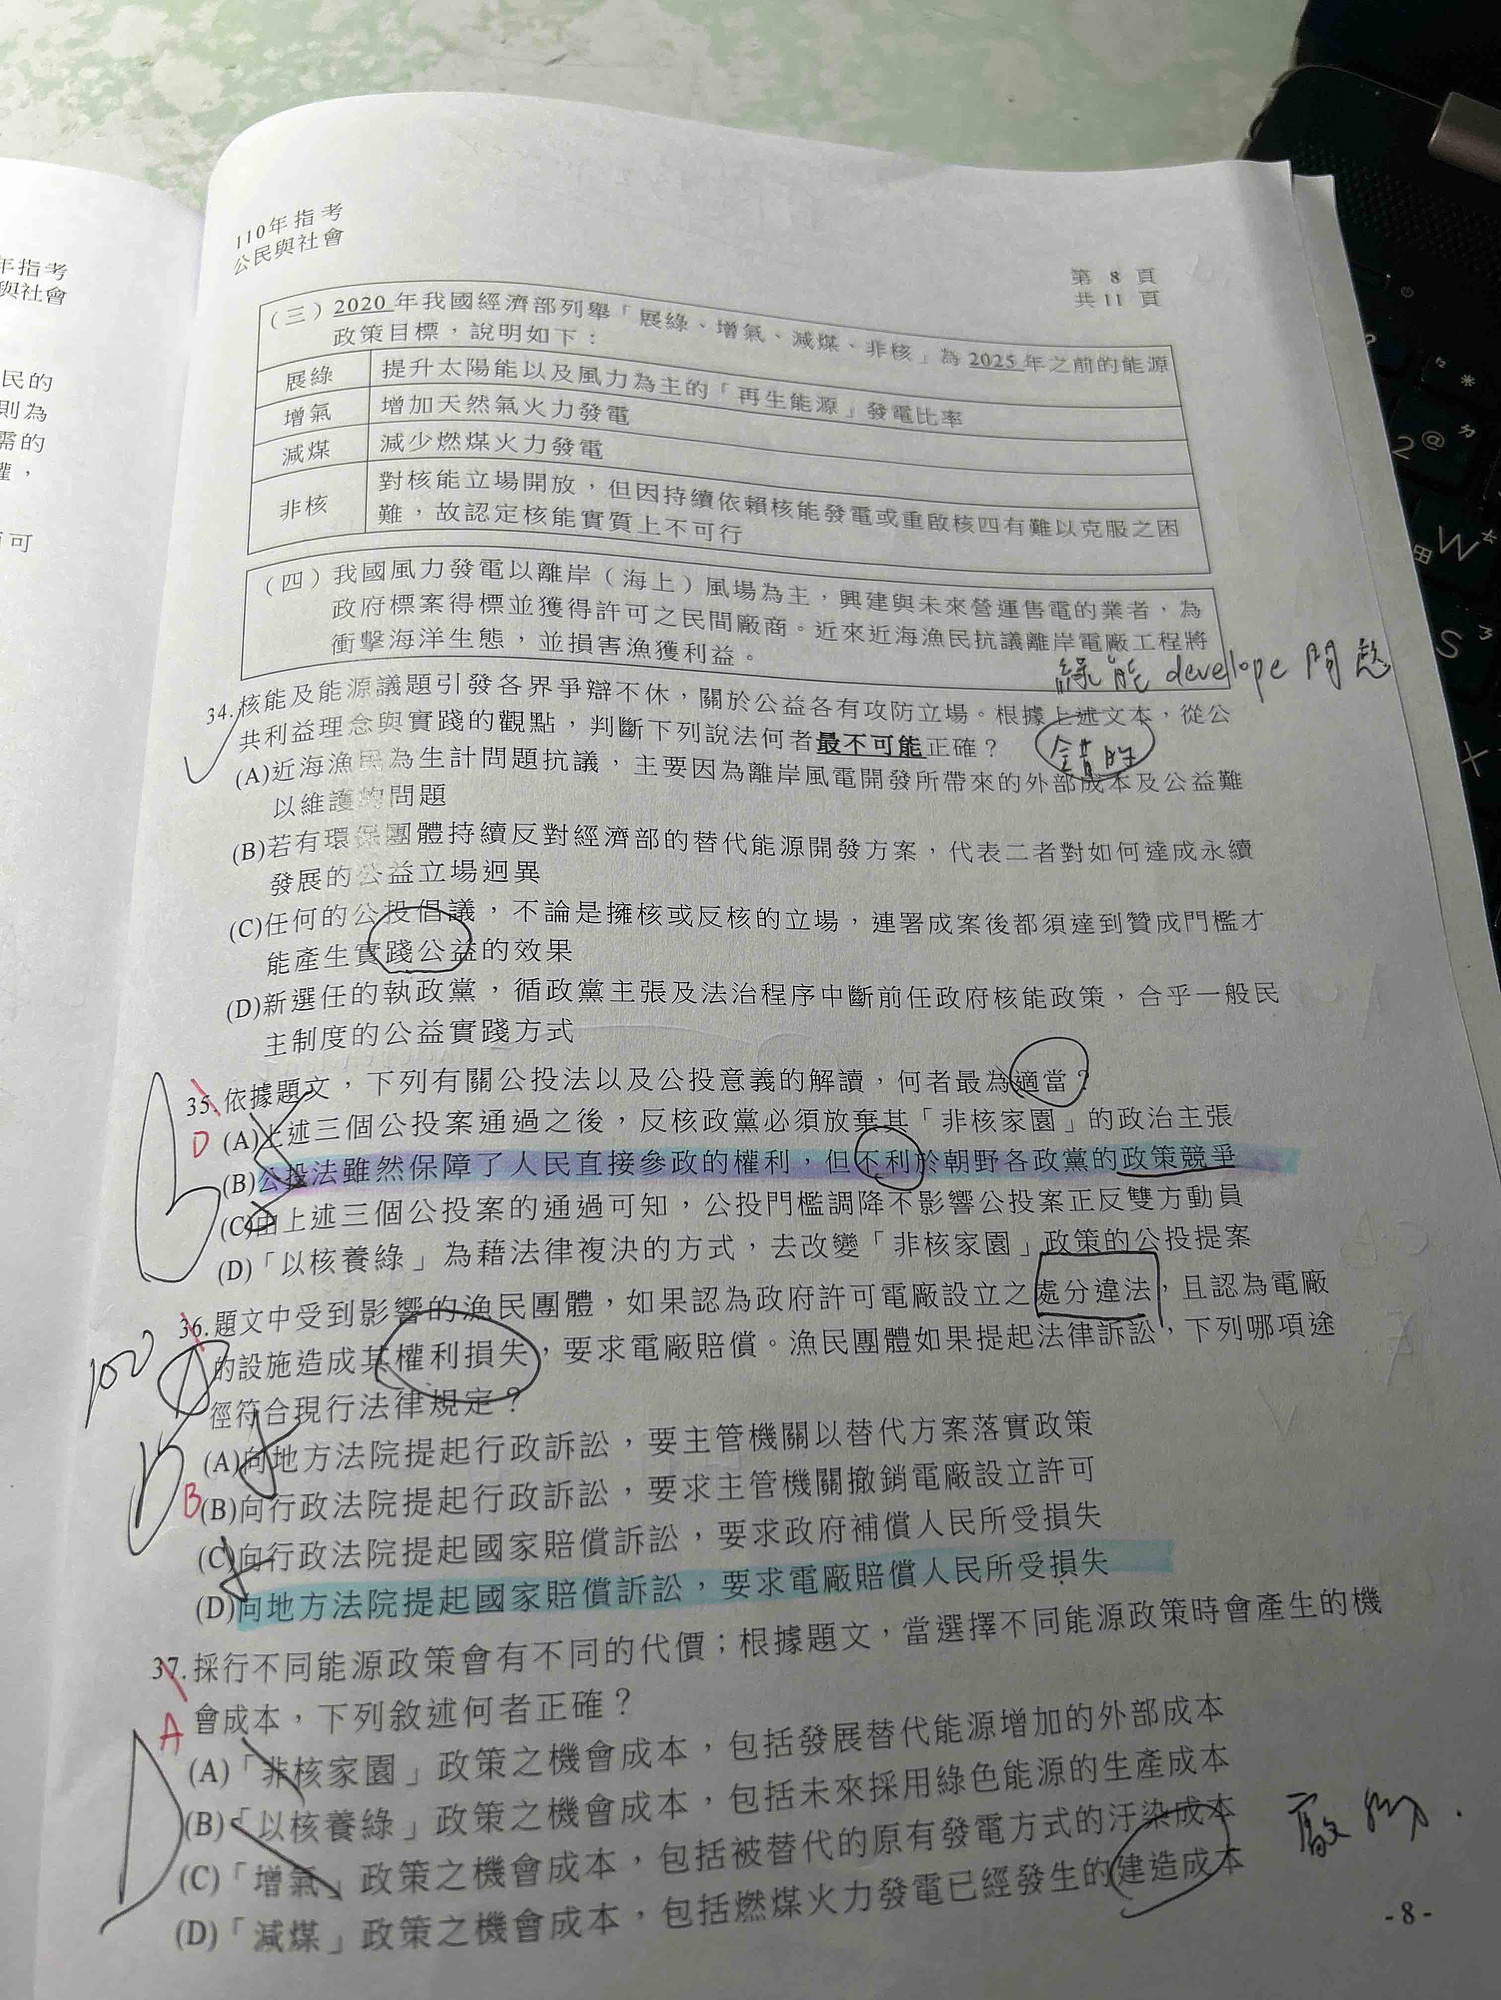 年指考
與社會
民的
則為
需的
權，
可
110年指考
公民與社會
第 8 頁
共11 頁
（三）2020年我國經濟部列舉「展綠、增氣、減煤、非核」為2025年之前的能源
政策目標，說明如下：
展綠 提升太陽能以及風力為主的「再生能源」發電比率
增氣 增加天然氣火力發電
減煤 減少燃煤火力發電
非核 對核能立場開放，但因持續依賴核能發電或重啟核四有難以克服之困
難，故認定核能實質上不可行
（四）我國風力發電以離岸（海上）風場為主，興建與未來營運售電的業者，為
政府標案得標並獲得許可之民間廠商。近來近海漁民抗議離岸電廠工程將
衝擊海洋生態，並損害漁獲利益。
綠能 develope 問題
34.核能及能源議題引發各界爭辯不休，關於公益各有攻防立場。根據上述文本，從公
共利益理念與實踐的觀點，判斷下列說法何者最不可能正確？
錯的
(A)近海漁民為生計問題抗議，主要因為離岸風電開發所帶來的外部成本及公益難
以維護的問題
(B)若有環保團體持續反對經濟部的替代能源開發方案，代表二者對如何達成永續
發展的公益立場迥異
(C)任何的公投倡議，不論是擁核或反核的立場，連署成案後都須達到贊成門檻才
能產生實踐公益的效果
(D)新選任的執政黨，循政黨主張及法治程序中斷前任政府核能政策，合乎一般民
主制度的公益實踐方式
35.依據題文，下列有關公投法以及公投意義的解讀，何者最為適當？
D
(A)上述三個公投案通過之後，反核政黨必須放棄其「非核家園」的政治主張
(B)公投法雖然保障了人民直接參政的權利，但不利於朝野各政黨的政策競爭
(C)由上述三個公投案的通過可知，公投門檻調降不影響公投案正反雙方動員
(D)「以核養綠」為藉法律複決的方式，去改變「非核家園」政策的公投提案
36.題文中受到影響的漁民團體，如果認為政府許可電廠設立之處分違法，且認為電廠
的設施造成其權利損失，要求電廠賠償。漁民團體如果提起法律訴訟，下列哪項途
徑符合現行法律規定？
(A)向地方法院提起行政訴訟，要主管機關以替代方案落實政策
B
(B)向行政法院提起行政訴訟，要求主管機關撤銷電廠設立許可
(C)向行政法院提起國家賠償訴訟，要求政府補償人民所受損失
(D)向地方法院提起國家賠償訴訟，要求電廠賠償人民所受損失
37.採行不同能源政策會有不同的代價；根據題文，當選擇不同能源政策時會產生的機
會成本，下列敘述何者正確？
A
D
(A)「非核家園」政策之機會成本，包括發展替代能源增加的外部成本
(B)「以核養綠」政策之機會成本，包括未來採用綠色能源的生產成本
(C)「增氣」政策之機會成本，包括被替代的原有發電方式的汙染成本
(D)「減煤」政策之機會成本，包括燃煤火力發電已經發生的建造成本
- 8 -